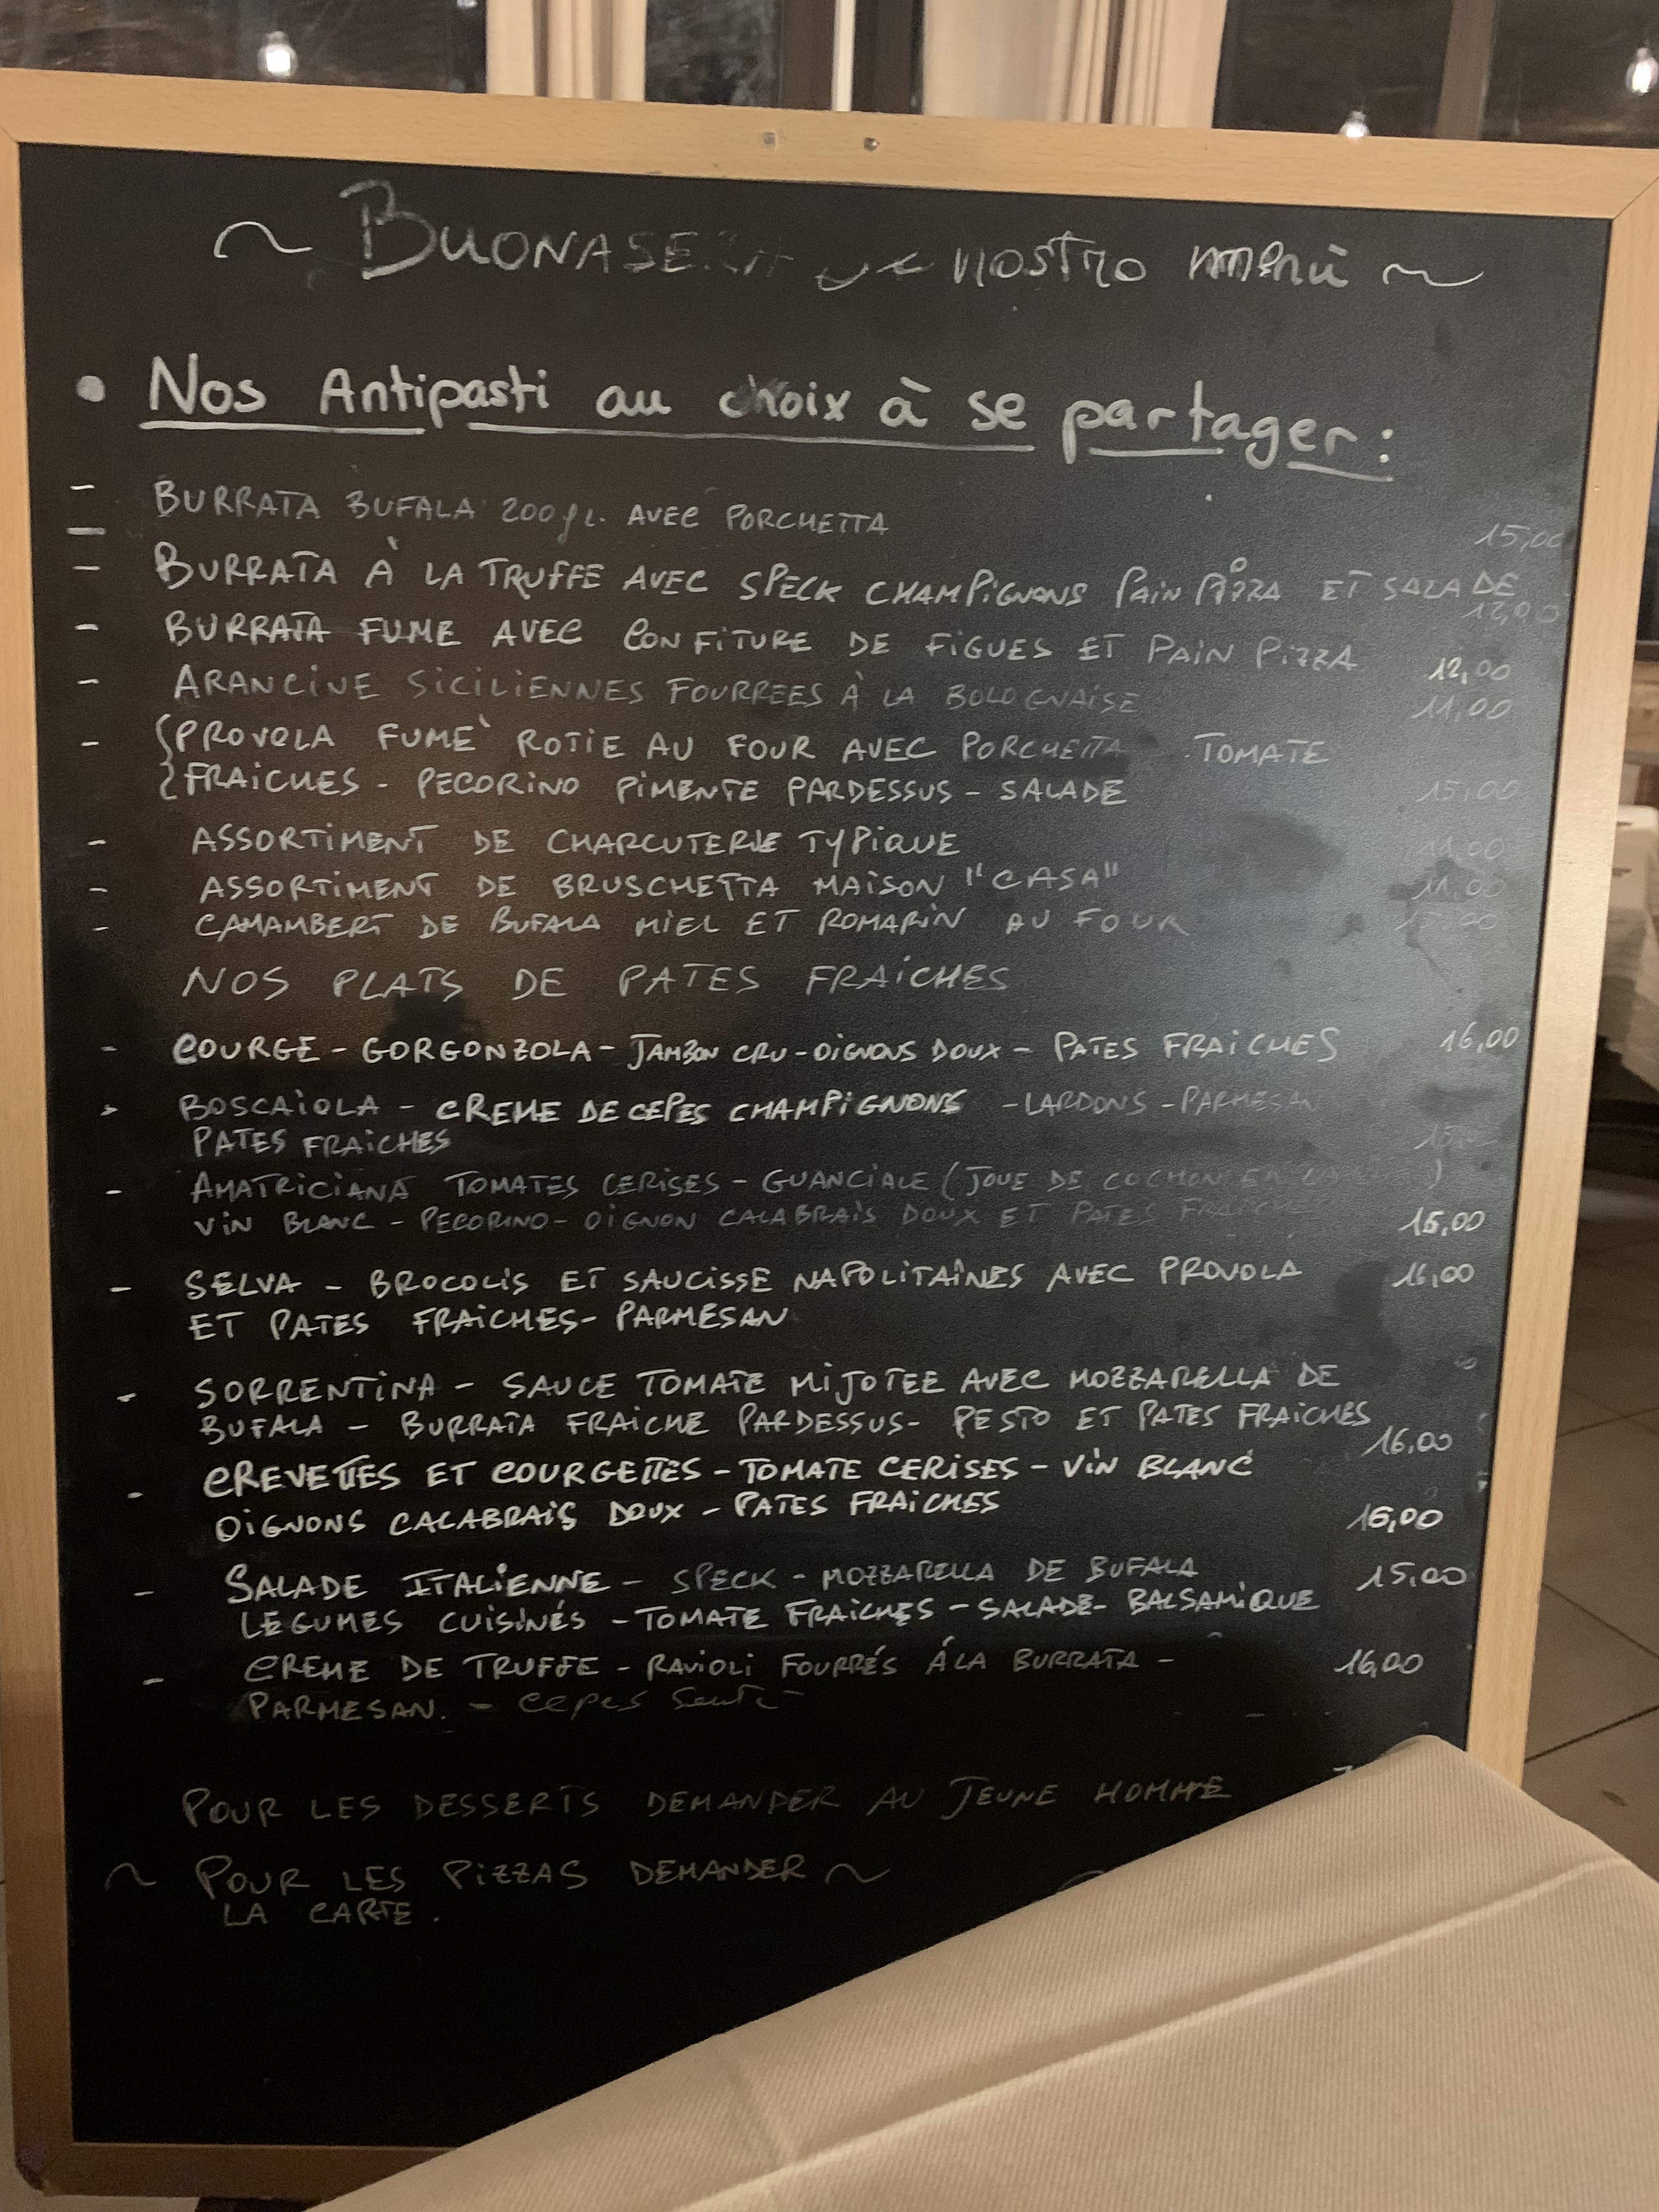 ~ BUONASERA nostro menù ~
• Nos Antipasti au choix à se partager :
- BURRATA BUFALA 200gr. AVEC PORCHETTA 15,00
- BURRATA À LA TRUFFE AVEC SPECK CHAMPIGNONS PAIN PIZZA ET SALADE
- BURRATA FUME AVEC CONFITURE DE FIGUES ET PAIN PIZZA 12,00
- ARANCINE SICILIENNES FOURREES À LA BOLOGNAISE 11,00
- PROVOLA FUME` ROTIE AU FOUR AVEC PORCHETTA TOMATE
FRAICHES - PECORINO PIMENTE PARDESSUS - SALADE 15,00
- ASSORTIMENT DE CHARCUTERIE TYPIQUE 11,00
- ASSORTIMENT DE BRUSCHETTA MAISON "CASA" 11,00
- CAMAMBERT DE BUFALA MIEL ET ROMARIN AU FOUR
NOS PLATS DE PATES FRAICHES
- COURGE - GORGONZOLA - JAMBON CRU - OIGNONS DOUX - PATES FRAICHES 16,00
- BOSCAIOLA - CREME DE CEPES CHAMPIGNONS - LARDONS - PARMESAN
PATES FRAICHES
- AMATRICIANA TOMATES CERISES - GUANCIALE (JOUE DE COCHON EN )
VIN BLANC - PECORINO - OIGNON CALABRAIS DOUX ET PATES FRAICHES 15,00
- SELVA - BROCOLIS ET SAUCISSE NAPOLITAINES AVEC PROVOLA 16,00
ET PATES FRAICHES - PARMESAN
- SORRENTINA - SAUCE TOMATE MIJOTEE AVEC MOZZARELLA DE
BUFALA - BURRATA FRAICHE PARDESSUS - PESTO ET PATES FRAICHES 16,00
- CREVETTES ET COURGETTES - TOMATE CERISES - VIN BLANC
OIGNONS CALABRAIS DOUX - PATES FRAICHES 16,00
- SALADE ITALIENNE - SPECK - MOZZARELLA DE BUFALA 15,00
LEGUMES CUISINÉS - TOMATE FRAICHES - SALADE - BALSAMIQUE
- CREME DE TRUFFE - RAVIOLI FOURRÉS Á LA BURRATA - 16,00
PARMESAN. - cepes
POUR LES DESSERTS DEMANDER AU JEUNE HOMME
~ POUR LES PIZZAS DEMANDER ~
LA CARTE .